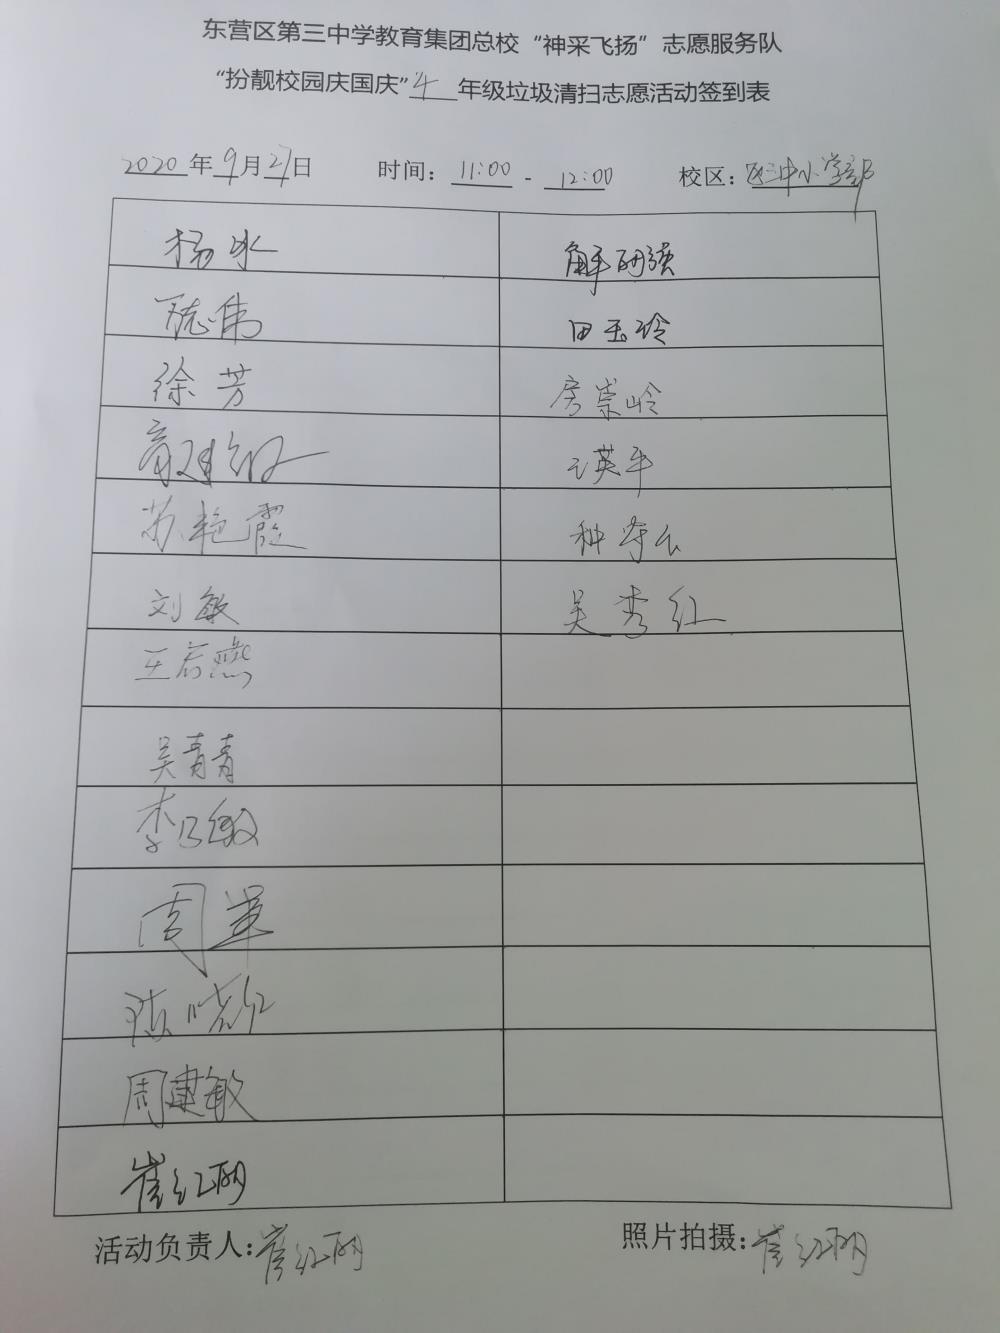 东营区第三中学教育集团总校“神采飞扬”志愿服务队
“扮靓校园庆国庆”4年级垃圾清扫志愿活动签到表
2020年9月27日 时间：11:00 - 12:00 校区：区三中小学部
杨冰
徐芳 房崇岭
苏艳霞
刘敏 吴秀红
王君燕
吴青青
李乃敏
周军
陈晓红
周建敏
崔红丽
田玉玲
活动负责人：崔红丽 照片拍摄：崔红丽